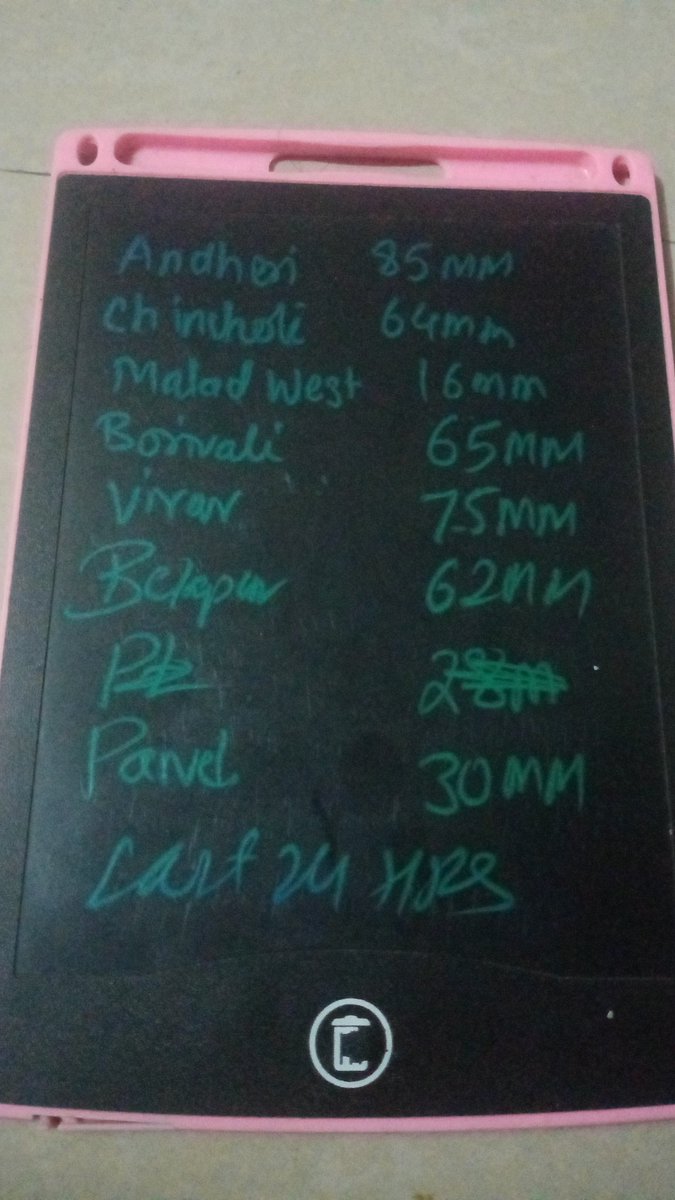 Andheri 85MM
Chincholi 64mm
Malad West 16mm
Borivali 65MM
Virar 75MM
Belapur 62MM
Panvel 30MM
Last 24 HRS